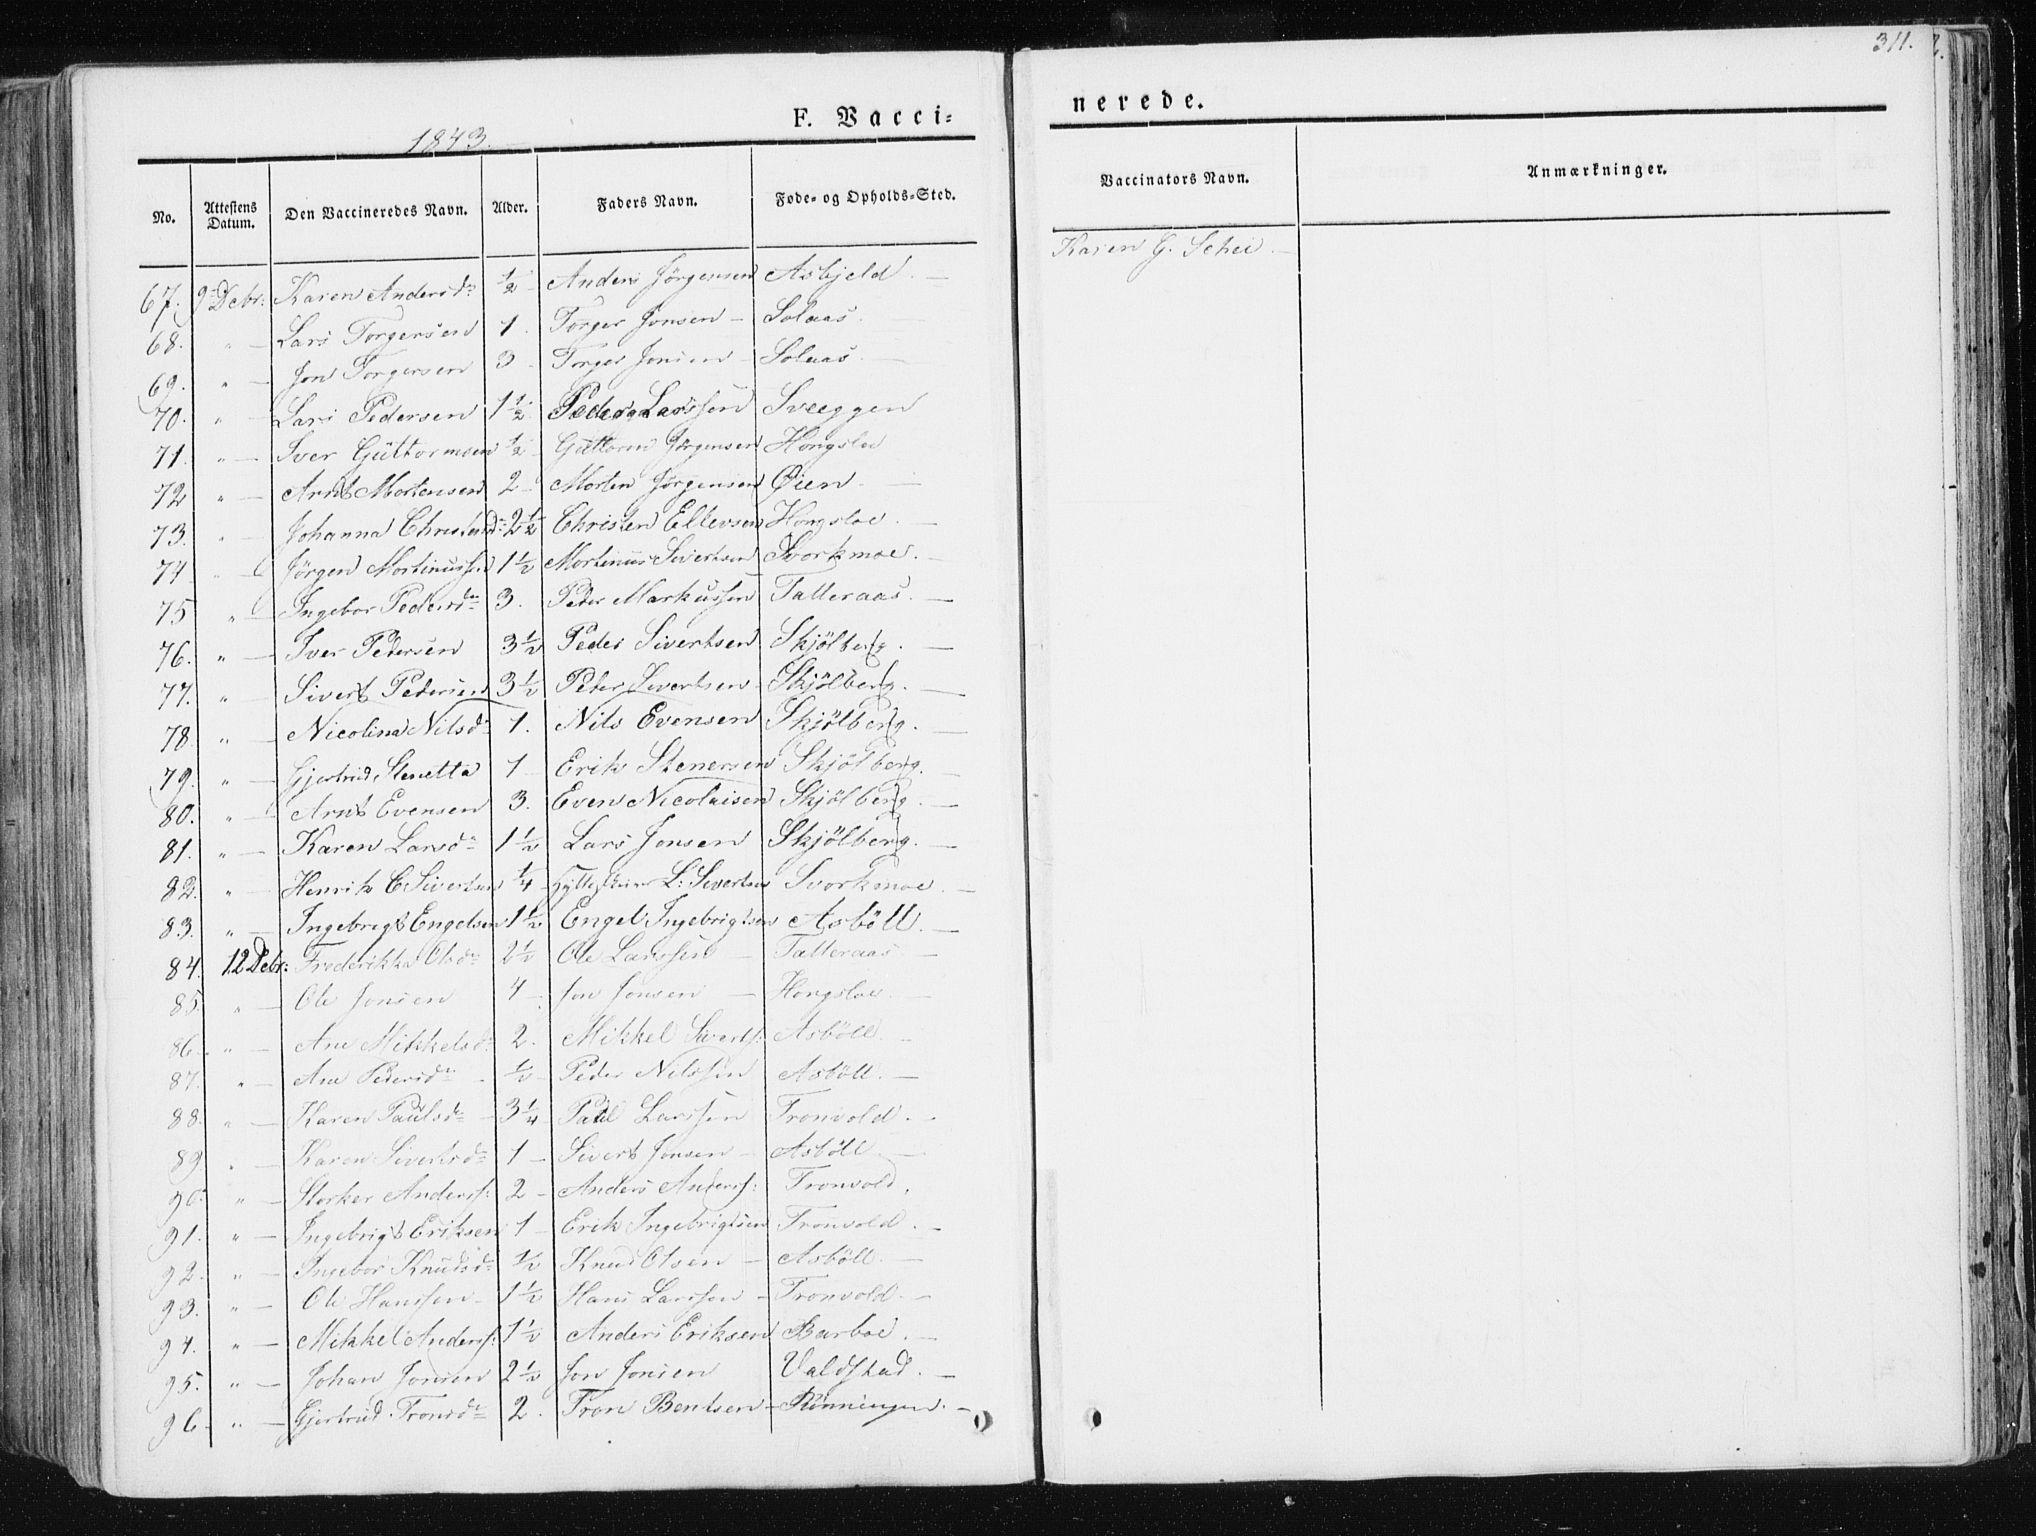 311.
F. Vacci=
nerede.
1843.
No. Attestens Datum. Den Vaccineredes Navn. Alder. Faders Navn. Føde- og Opholds-Sted. Vaccinators Navn. Anmærkninger.
67. 9 Debr: Karen Andersd: 1/2 Anders Jörgensen Asbjeld. — Karen G. Schei —
68. " — Lars Torgersen 1. Torger Jonsen — Solaas. —
69. " — Jon Torgersen 3 Torger Jonsen Solaas. —
70. " — Lars Pedersen 1 1/2 Peder Larssen Sveeggen
71. " — Iver Guttormsen 1/2 Guttorm Jörgensen Hongsloe
72 " — Arnt Mortensen 2 — Morten Jörgensen Øien. —
73. " — Johanna Christensd: 2 1/2 Christen Ellevsen Hongsloe. —
74 " — Jörgen Mortinuss. 1 1/2 Mortinus Sivertsen Svorkmoe. —
75 " — Ingebor Pedersd: 3. Peder Markussen Talleraas. —
76. " — Iver Pedersen 3 1/2 Peder Sivertsen Skjölberg. —
77. " — Sivert Pedersen 3 1/2 Peder Sivertsen Skjölberg. —
78. " — Nicolina Nilsd: 1. Nils Evensen Skjölberg. —
79. " — Gjertrud Stenetta 1 — Erik Stenersen Skjölberg. —
80. " — Arnt Evensen 3. Even Nicolaisen Skjölberg. —
81. " — Karen Larsd: 1 1/2 Lars Jonsen Skjölberg. —
82. " — Henrik C Sivertsen 1/4 L: Sivertsen Svorkmoe. —
83. " — Ingebrigt Engelsen 1 1/2 Engel Ingebrigtsen Asböll. —
84. 12 Debr: Frederikka Olsd: 2 1/2 Ole Larssen — Talleraas. —
85. " — Ole Jonsen 4 — Jon Jonsen — Hongsloe. —
86. " — Ane Mikkelsd: 2. Mikkel Siverts: Asböll. —
87. " — Ane Pedersd: — 1/2 — Peder Nilssen Asböll. —
88. " — Karen Paulsd: — 3 1/4 Paul Larssen Tronvold. —
89. " — Karen Sivertsd: 1 — Sivert Jonsen — Asböll. —
90. " — Storker Anderss: 2 — Anders Anderss: Tronvold.
91. " — Ingebrigt Eriksen 1 — Erik Ingebrigtsen Tronvold. —
92. " — Ingebor Knudsd: 1/2 Knud Olsen — Asböll. —
93. " — Ole Hanssen — 1 1/2 Hans Larssen — Tronvold. —
94. " — Mikkel Anderss: 1 1/2 Anders Eriksen Barboe. —
95. " — Johan Jonsen 2 1/2 Jon Jonsen Valdstad. —
96 " — Gjertrud Tronsd: 2. Tron Bentsen — Rönningen. —